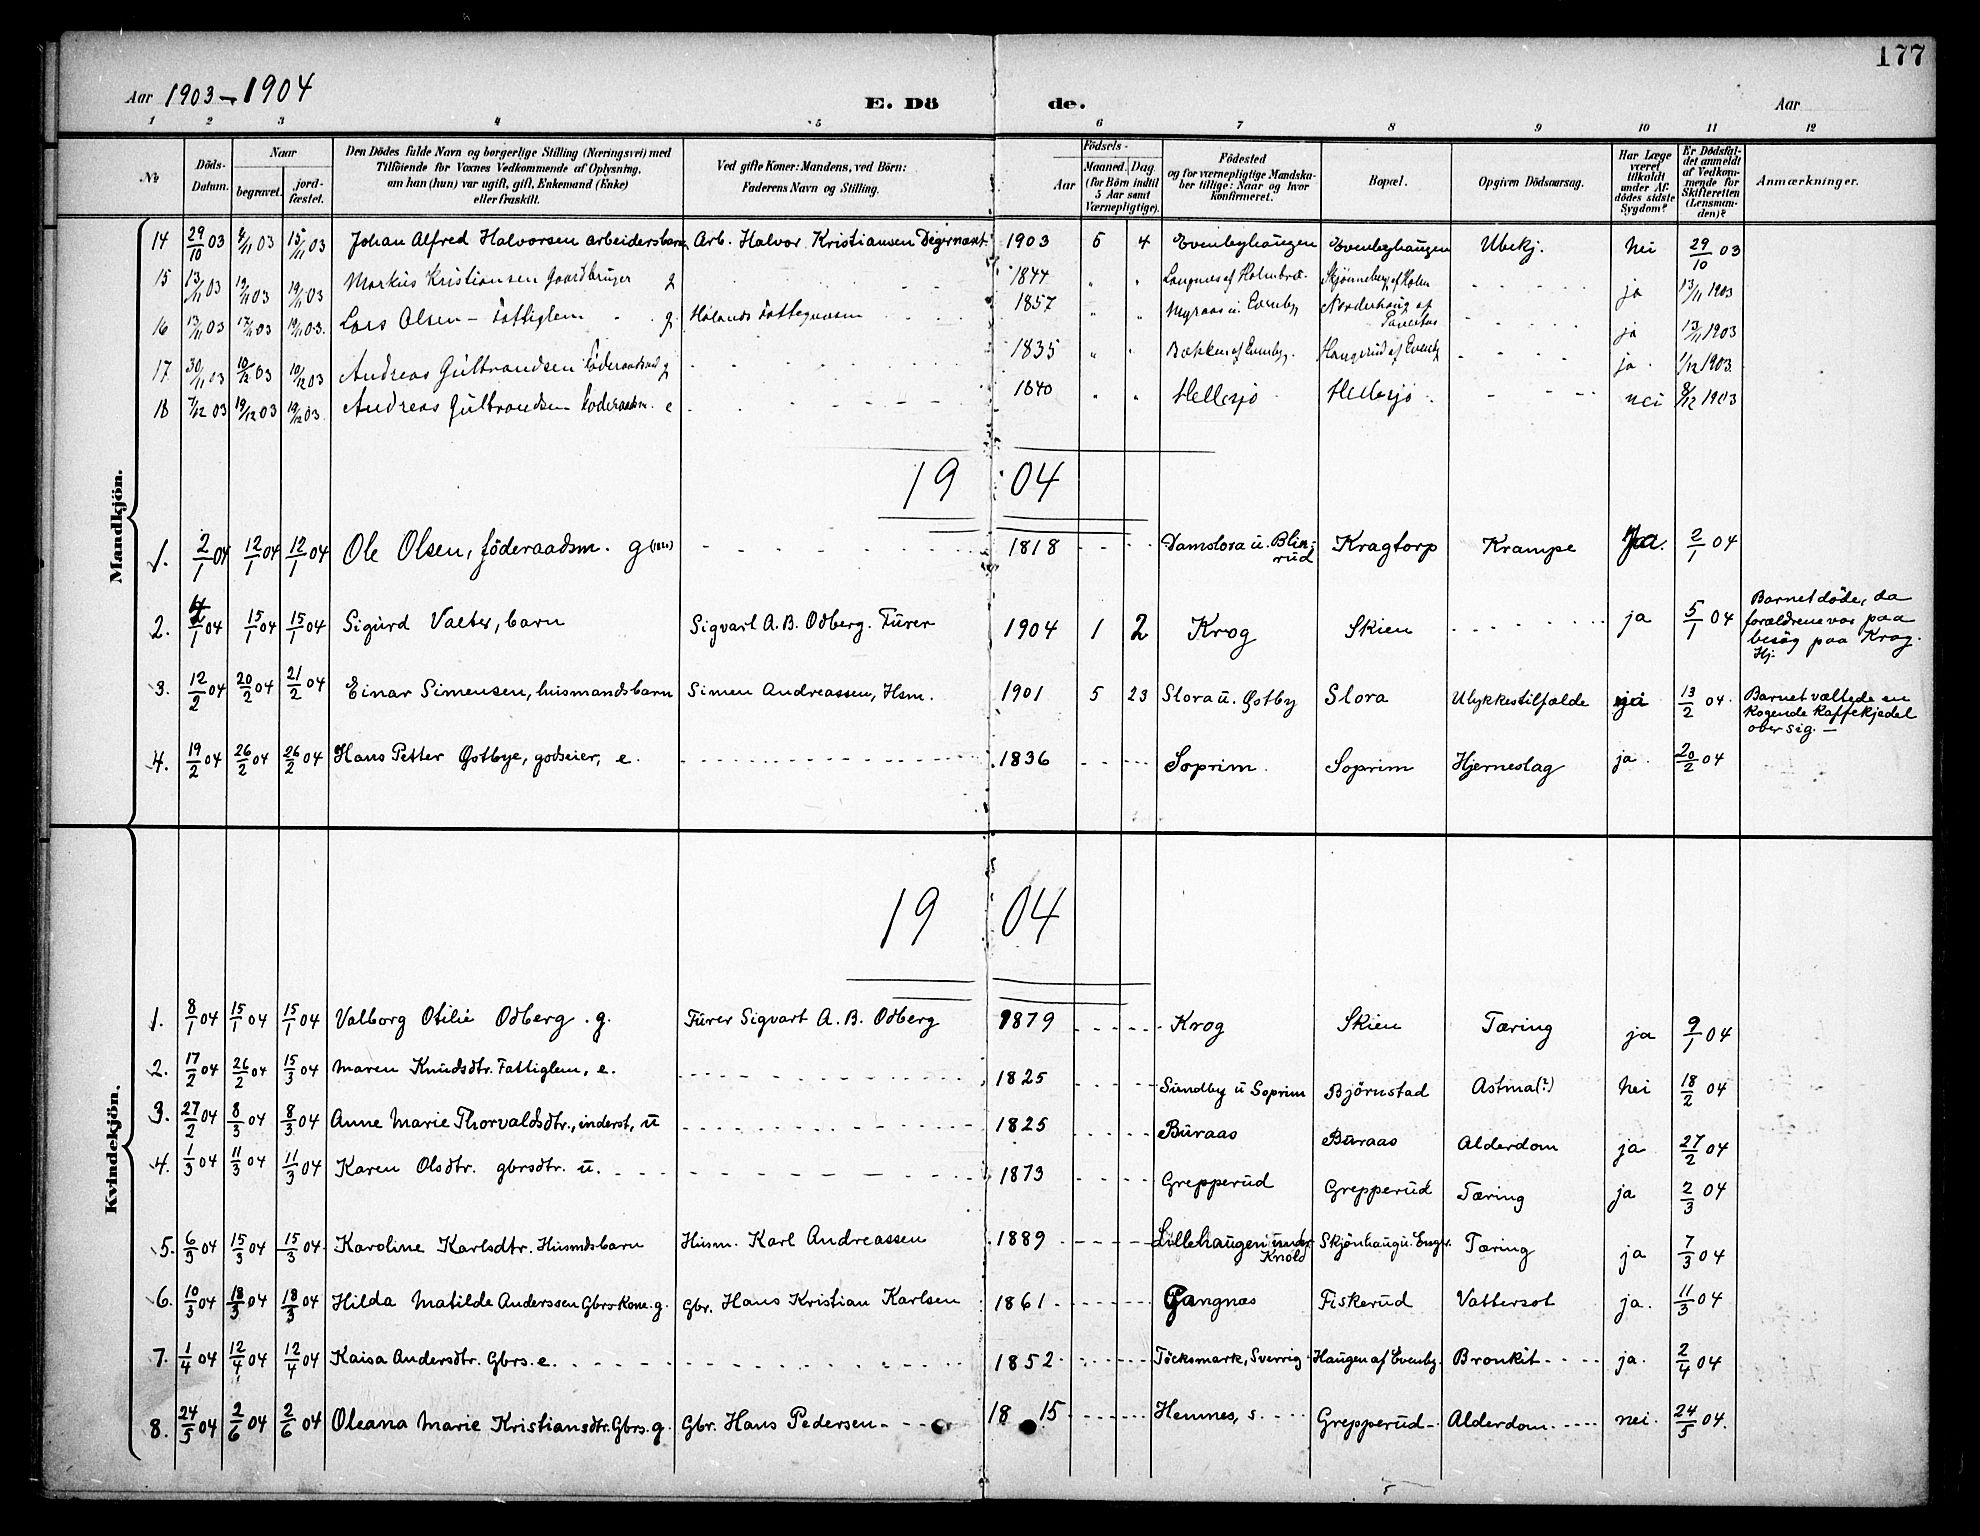 177
Aar 1903–1904 E. Dö de. Aar
1 2 3 4 5 6 7 8 9 10 11 12
№ Döds-Datum. Naar begravet. jord-fæstet. Den Dödes fulde Navn og borgerlige Stilling (Næringsvei) med Tilföiende for Voxnes Vedkommende af Oplysning, om han (hun) var ugift, gift, Enkemand (Enke) eller fraskilt. Ved gifte Koner: Mandens, ved Börn: Faderens Navn og Stilling. Födsels- Aar Maaned. Dag. (for Börn indtil 5 Aar samt Værnepligtige). Födested og for værnepligtige Mandskaber tillige: Naar og hvor konfirmeret. Bopæl. Opgiven Dödsaarsag. Har Læge været tilkaldt under Afdödes sidste Sygdom? Er Dödsfaldet anmeldt af Vedkommende for Skifteretten (Lensmanden)? Anmærkninger.
Mandkjön.
14 29/10 03 8/11 03 15/11 03 Johan Alfred Halvorsen arbeidersbarn Arb. Halvor Kristiansen Degernæst 1903 5 4 Evenbyhaugen Evenbyhaugen Ubekj. nei 29/10 03
15 13/11 03 19/11 03 19/11 03 Markus Kristiansen Gaardbruger g 1844 " " Langnes af Holmbret Skjønneberg af Holm ja 13/11 1903
16 13/11 03 17/11 03 19/11 03. Lars Olsen – Fattiglem g. Hølands Fattigvæsen 1857 " " Myraas u. Evenby Nordenhaug af ja 13/11 1903
17 30/11 03 10/12 03 10/12 03 Andreas Gulbrandsen Föderaadsmd g 1835 " " Bækken af Evenby. Haugerud af Evenby ja. 1/12 1903
18 7/12 03 19/12 03 19/12 03. Andreas Gulbrandsen Föderaadsm. e 1840 " " Hellesjø Hellesjø nei 8/12 1903
19 04
1. 2/1 04 12/1 04 12/1 04 Ole Olsen, föderaadsm. g 1818 Damslora u. Blin- rud Kragtorp Krampe Ja. 2/1 04
2. 4/1 04 15/1 04 15/1 04 Sigurd Valter, barn Sigvart A. B. Odberg. Furer 1904 1 2 Krog Skien ja 5/1 04 Barnet döde, da
forældrene var paa
besög paa Krog.
Hj.
3. 12/2 04 20/2 04 21/2 04 Einar Simensen, husmandsbarn Simen Andreassen, Hsm. 1901 5 23 Slora u. Østby Slora Ulykkestilfælde ja 13/2 04. Barnet væltede en
kogende kaffekjedel
over sig. –
4. 19/2 04 26/2 04 26/2 04 Hans Petter Østbye, godseier, e. 1836 Soprim. Soprim Hjerneslag ja. 20/2 04
Kvindekjön.
19 04
1. 8/1 04 15/1 04 15/1 04 Valborg Otilie Odberg. g. Furer Sigvart A. B. Odberg 1879 Krog Skien Tæring ja 9/1 04
2. 17/2 04 26/2 04 15/3 04 Maren Knudsdtr. Fattiglem, e. 1825 Sundby u Soprim Bjørnstad Astma(?) nei 18/2 04
3. 27/2 04 8/3 04 8/3 04 Anne Marie Thorvaldsdtr., inderst, u 1825 Buraas Buraas Alderdom ja 27/2 04
4. 1/3 04 11/3 04 11/3 04 Karen Olsdtr. gbrsdtr. u. 1873 Grepperud Grepperud Tæring ja 2/3 04
5. 6/3 04 15/3 04 15/3 04. Karoline Karlsdtr. Husmdsbarn Husm. Karl Andreassen 1889 Lillehaugen under Knold Skjønhaug u. Engr. Tæring ja 7/3 04
6. 10/3 04 18/3 04 18/3 04 Hilda Matilde Anderssen Gbrs Kone. g. Gbr. Hans Kristian Karlsen 1861. Gangnæs Fiskerud Vattersot ja. 11/3 04
7. 1/4 04 12/4 04 12/4 04 Kaisa Andersdtr. Gbrs. e. 1852 Töcksmark, Sverrig Haugen af Evenby. Bronkit ja. 2/4 04
8. 24/5 04 2/6 04 2/6 04 Oleana Marie Kristiansdtr. Gbrs. g. Gbr. Hans Pedersen 1815 Hemnes, s. Grepperud Alderdom nei. 24/5 04.